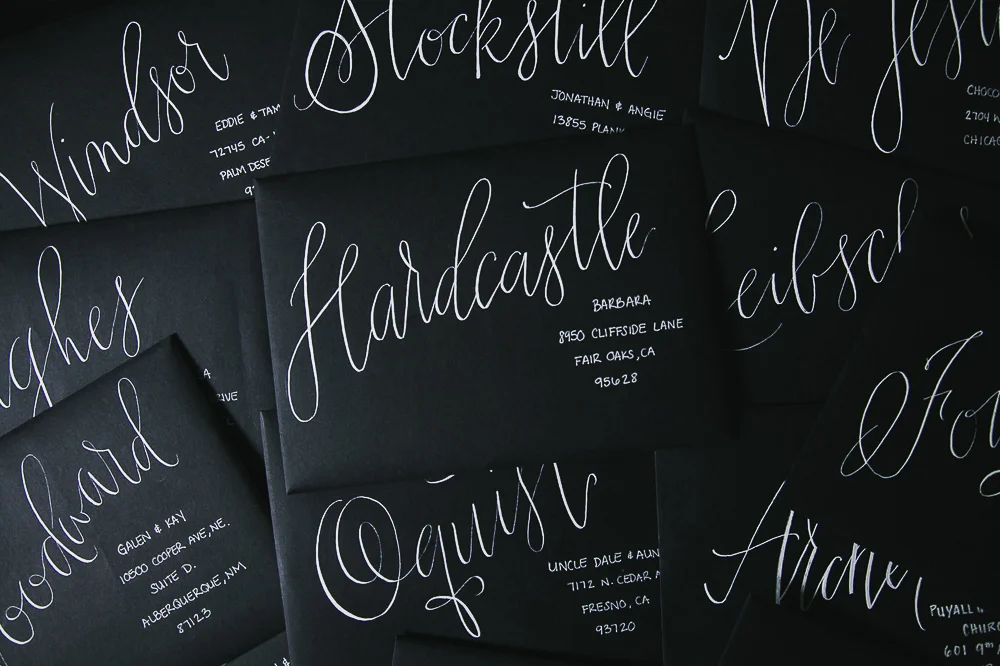 Windsor
EDDIE & TAM
72745 CA-
PALM DESE
9
Stockstill
JONATHAN & ANGIE
13855 PLANK
CHOCO
2704 W
CHICAG
Hardcastle
BARBARA
8950 CLIFFSIDE LANE
FAIR OAKS, CA
95628
eibsch
ghes
A
IVE
oodward
GALEN & KAY
10500 COOPER AVE, NE.
SUITE D.
ALBERQUERQUE, NM
87123
Oquist
UNCLE DALE & AUN
7172 N. CEDAR A
FRESNO, CA
93720
PUYALLU
CHURC
601 9TH